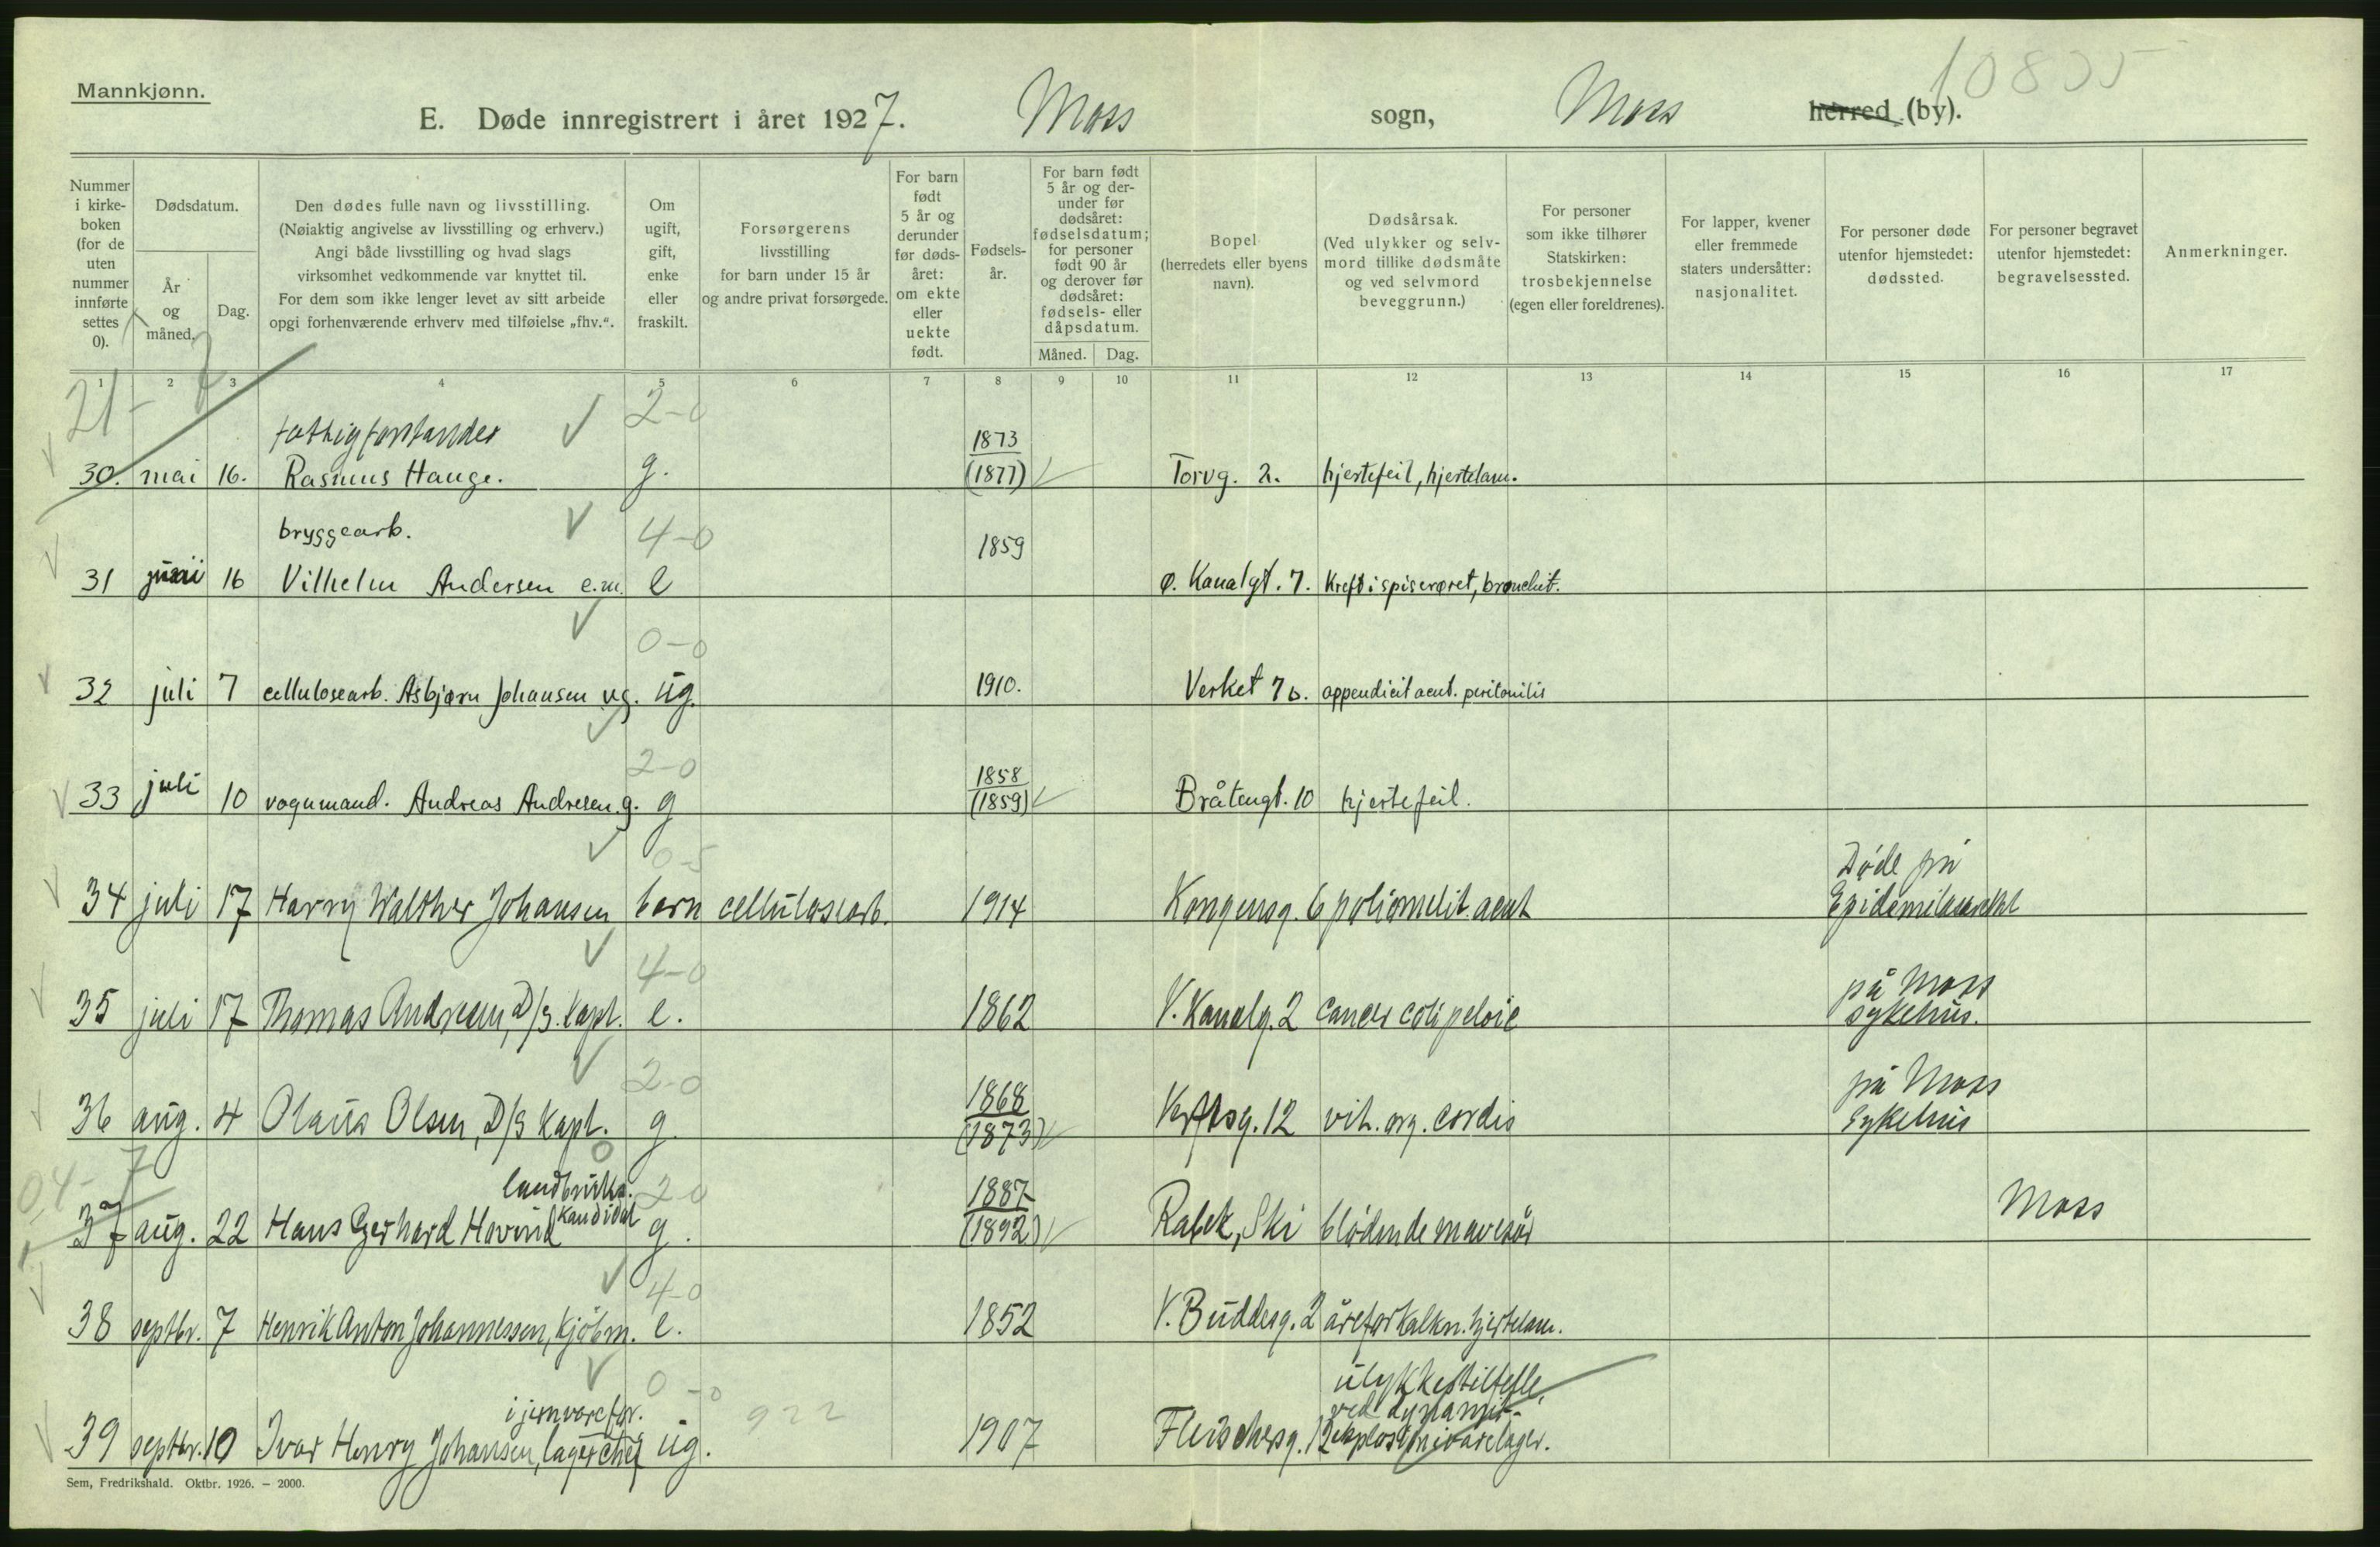 Mannkjønn.
10835
E. Døde innregistrert i året 1927. Moss sogn, Moss herred (by).
Nummer i kirke- boken (for de uten nummer innførte settes 0).
Dødsdatum.
År og måned.
Dag.
Den dødes fulle navn og livsstilling.
(Nøiaktig angivelse av livsstilling og erhverv.)
Angi både livsstilling og hvad slags
virksomhet vedkommende var knyttet til.
For dem som ikke lenger levet av sitt arbeide
opgi forhenværende erhverv med tilføielse „fhv.“.
Om ugift, gift, enke eller fraskilt.
Forsørgerens
livsstilling
for barn under 15 år
og andre privat forsørgede.
For barn født 5 år og derunder før døds- året: om ekte eller uekte født.
Fødsels- år.
For barn født 5 år og der- under før dødsåret: fødselsdatum; for personer født 90 år og derover før dødsåret: fødsels- eller dåpsdatum.
Måned.
Dag.
Bopel
(herredets eller byens
navn).
Dødsårsak.
(Ved ulykker og selv-
mord tillike dødsmåte
og ved selvmord
beveggrunn.)
For personer
som ikke tilhører
Statskirken:
trosbekjennelse
(egen eller foreldrenes).
For lapper, kvener
eller fremmede
staters undersåtter:
nasjonalitet.
For personer døde
utenfor hjemstedet:
dødssted.
For personer begravet
utenfor hjemstedet:
begravelsessted.
Anmerkninger.
1 2 3 4 5 6 7 8 9 10 11 12 13 14 15 16 17
21- 7
fattigforstander 2-0 1873
30. mai 16. Rasmus Hauge. g. (1877) Torvg. 2. hjertefeil, hjertelam.
bryggearb. 4-0 1859
31 16 Vilhelm Andersen e.m. e ø. Kanalgt. 7. Kreft i spiserøret, bronchit.
0-0
32 juli 7 cellulosearb. Asbjørn Johansen ug. ug. 1910. Verket 7b. appendicit acut. peritonitis
2-0 1858
33 juli 10 vognmand. Andreas Andresen g. g (1859) Bråtengt. 10 hjertefeil.
0-5 Døde på
34 juli 17 Harry Walther Johansen barn cellulosearb. 1914 Kongensg. 6 poliomelit. acut
4-0 på Moss
35 juli 17 Thomas Andresen, D/S. kapt. e. 1862 V. Kanalg. 2 sykehus.
2-0 1868 på Moss
36 aug. 4 Olaus Olsen, D/S kapt. g. (1873) Verftsg. 12 vit. org. cordis Sykehus
04- 7
landbruks. 2-0 1887
37 aug. 22 Hans Gerhard Hovind kandidat g. (1892) Rabek, Ski blødende mavesår Moss
4-0
38 septbr. 7 Henrik Anton Johannessen, kjøbm. e. 1852 V. Buddesg. 2 åreforkalkn. hjertelam.
0-0 ulykkestilfelle,
i jernvareforr. 922 ved dynamit-
39 septbr. 10 Ivar Henry Johansen, lagerchef ug. 1907 Fleischersg. 12 eksplosion i varelager.
Sem, Fredrikshald. Oktbr. 1926. – 2000.